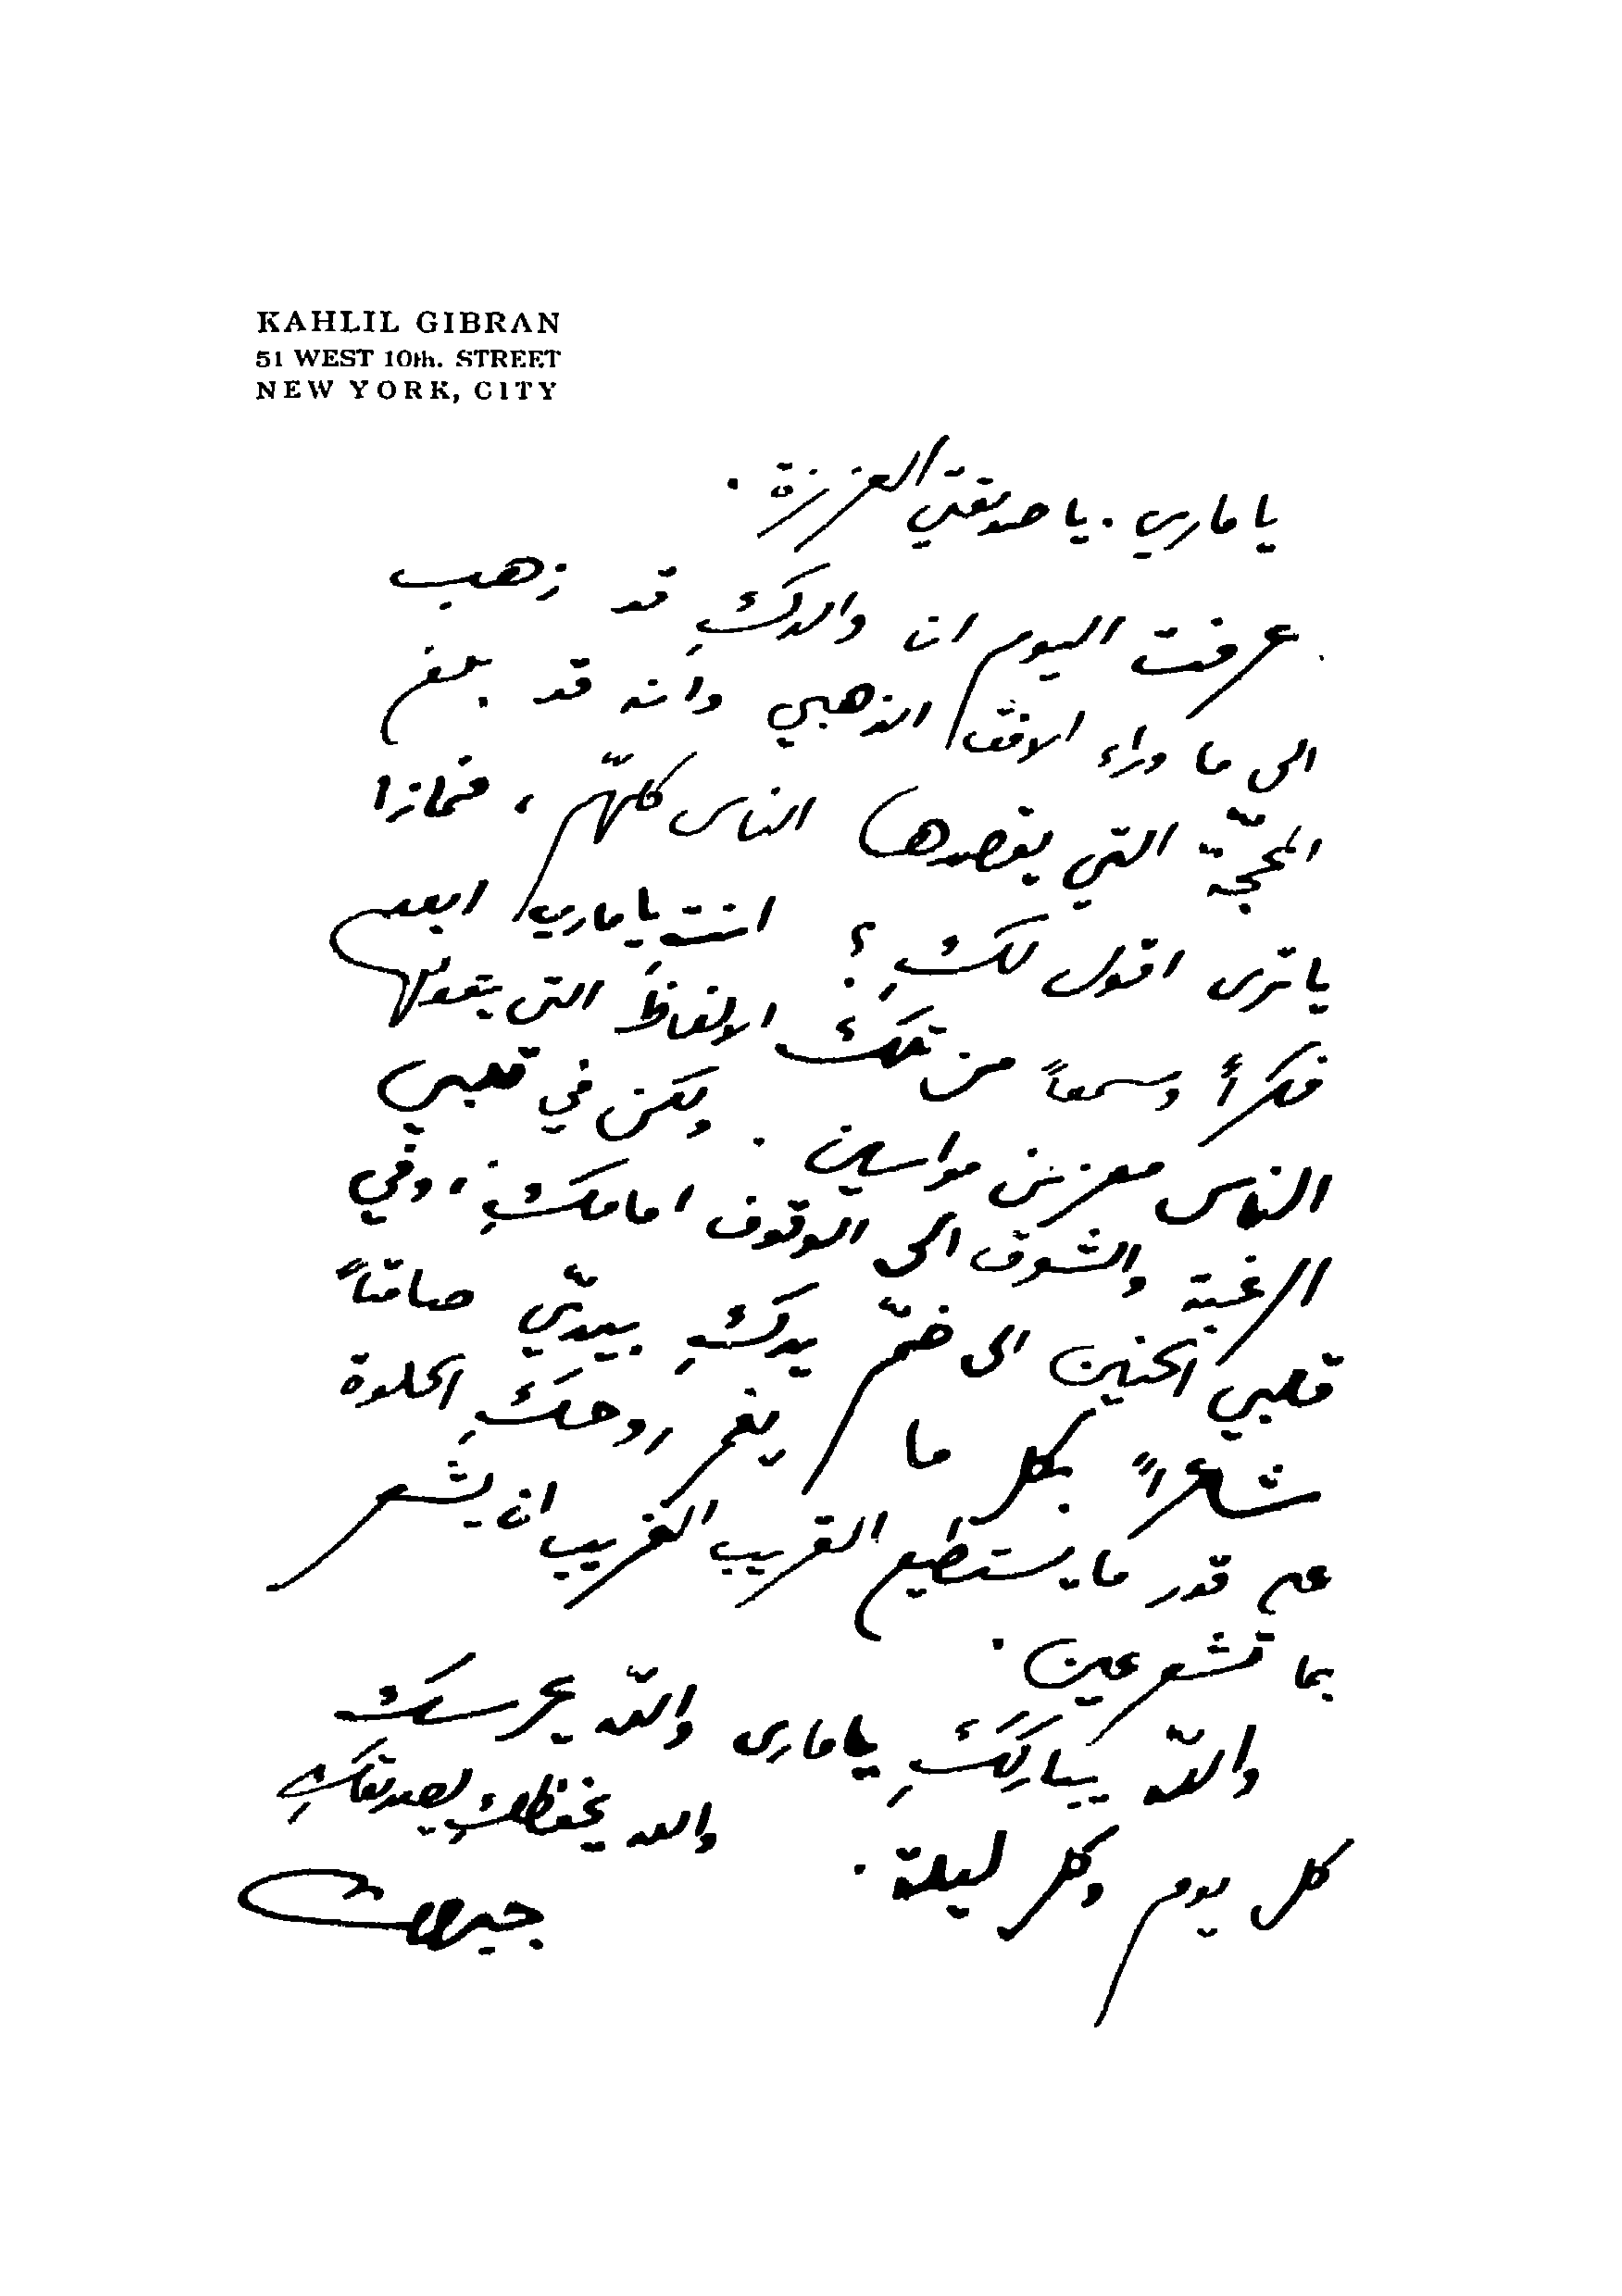 KAHLIL GIBRAN
51 WEST 10th. STREET
NEW YORK, CITY
يا ماري . يا صديقتي العزيزة .
عرفت اليوم ان والدكِ قد ذهب
الى ما وراء الافق الذهبي وانه قد بلغ
المحجّة التي يقصدها الناس كلهّم ، فماذا
يا ترى اقول لكِ ؟ انت يا ماري ابعد
فكراً وسمعاً من تلك الالفاظ التي يقولها
الناس معزين مواسين . ولكن في قلبي
الرغبة والشوق الى الوقوف امامكِ ، وفي
قلبي الحنين الى ضمّ يدكِ بيديّ صامتاً
شاعراً بكل ما يغمر روحكِ الحلوة
على قدر ما يستطيع القريب الغريب ان يشعر
بما تشعرين .
والله يباركِك يا ماري والله يحرسك
كل يوم وكل ليلة . والله يحفظكِ لصديقكِ
جبران